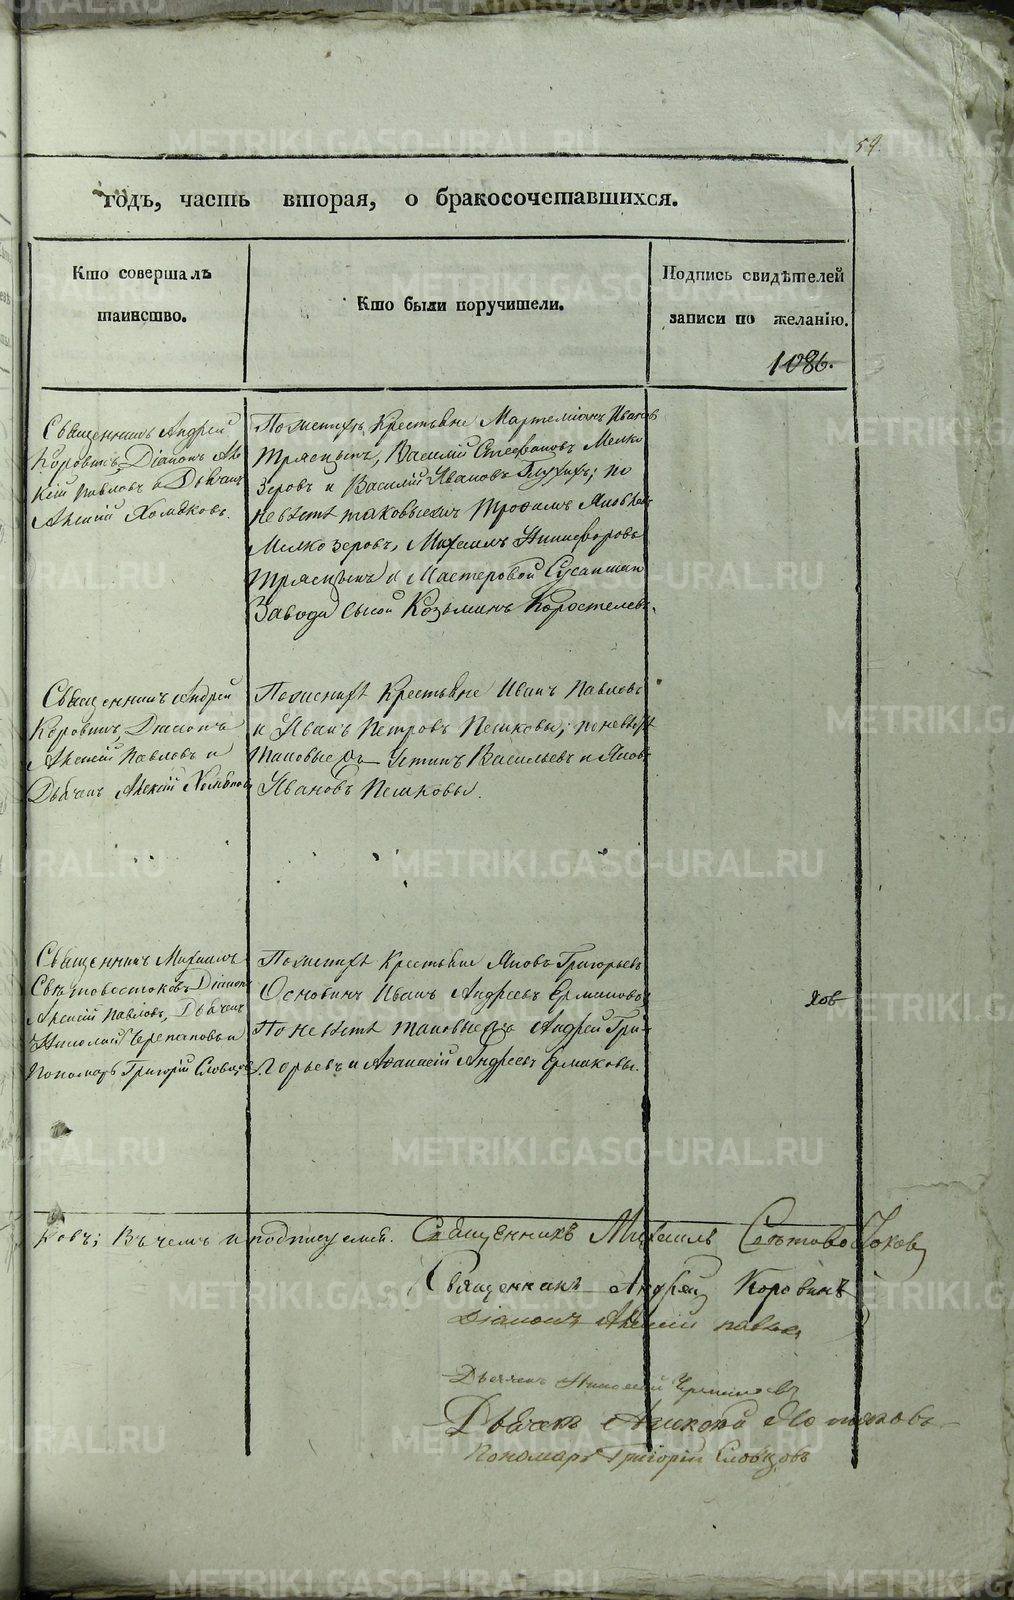 59.
годъ, часть вторая, о бракосочетавшихся.
Кто совершалъ таинство.
Кто были поручители.
Подпись свидѣтелей записи по желанію.
1086.
Священникъ Андрей
Коровинъ, Діаконъ Але
ксій Павловъ и Дьячекъ
Алексій Хомяковъ.
По женихѣ Крестьяне Мартеміанъ Ивановъ
Трясцынъ, Василій Стефановъ Мелко
зеровъ и Василій Ивановъ Глухихъ; по
невѣстѣ таковыежъ Трофимъ Яковлевъ
Мелкозеровъ, Михаилъ Никифоровъ
Трясцынъ и Мастеровой Сусанскаго
Завода Сысой Козьминъ Коростелевъ.
Священникъ Андрей
Коровинъ, Діаконъ
Алексій Павловъ и
Дьячекъ Алексій Хомяковъ
По женихѣ Крестьяне Иванъ Павловъ
и Иванъ Петровъ Пешковы; по невѣстѣ
таковые жъ Устинъ Васильевъ и Яковъ
Ивановъ Пешковы.
Священникъ Михаилъ
Свѣтовостоковъ, Діаконъ
Алексій Павловъ, Дьячекъ
Николай Черепановъ и
Пономарь Григорій Словцовъ
По женихѣ Крестьяне Яковъ Григорьевъ
Иванъ Андреевъ Ермаковъ
По невѣстѣ таковые жъ Андрей Гри-
горьевъ и Аѳанасій Андреевъ Ермаковы.
ховъ
ковъ; Въ чемъ и подписуемся. Священникъ Михаилъ Свѣтовостоковъ
Священникъ Андрей Коровинъ
Діаконъ Алексій Павловъ
Дьячекъ Николай Черепановъ
Дьячекъ Алексѣй Хомяковъ
Пономарь Григорій Словцовъ
METRIKI.GASO-URAL.RU